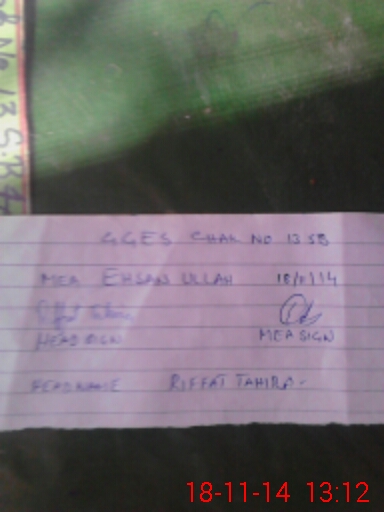 GGES CHAK NO 13 SB
MEA EHSAN ULLAH 18/11/14
HEAD SIGN MEA SIGN
HEAD NAME RIFFAT TAHIRA.
18-11-14 13:12